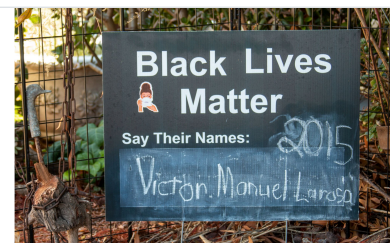 Black Lives
Matter
Say Their Names:
2015
Victor Manuel Larosa